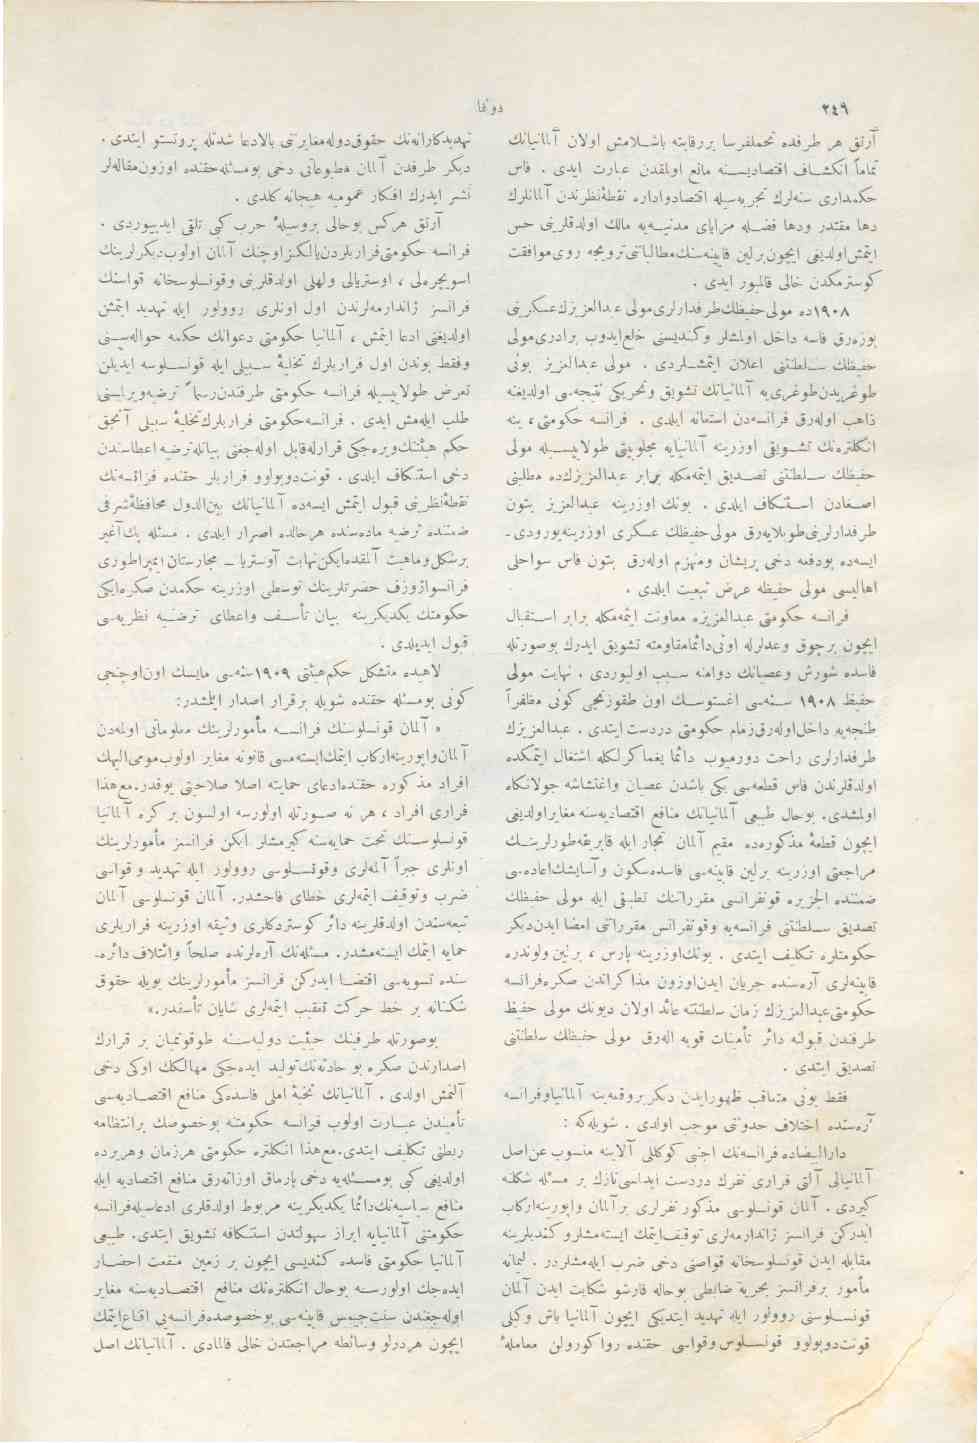 ٢٤٩
دونما
آرتق هر طرفده تحملفرسا بررقابته باشلامش اولان آلمانیانك
تماماً انكشاف اقتصادیسنه مانع اولمقدن عبارت ایدی . فاس
حكمداری سنه‌لرك تجربه‌سیله اقتصاداواداره نقطۀنظرندن آلمانلرك
دها مقتدر ودها فضله مزایای مدنیه‌یه مالك اولدقلرینی حس
ایتمش‌اولدیغی ایچون‌برلین قابینه‌سنك‌مطالباتنی‌ترویجه روی‌موافقت
كوسترمكدن خالی قالمیور ایدی .
١٩٠٨ده مولی‌حفیظك‌طرفدارلری‌مولی عبدالعزیزك‌عسكرینی
بوزه‌رق فاسه داخل اولمشلر وكندیسنی خلع‌ایدوب برادری‌مولی
حفیظك سلطنتنی اعلان ایتمشلردی . مولی عبدالعزیز بونی
طوغریدن‌طوغری‌یه آلمانیانك تشویق وتحریكی نتیجه‌سی اولدیغنه
ذاهب اوله‌رق فرانسه‌دن استعانه ایلدی . فرانسه حكومتی، ینه
انكلتره‌نك تشویقی اوزرینه آلمانیایه مجلوبیتی طولاییسیله مولی
حفیظك سلطنتنی تصدیق ایتمه‌مكله برابر عبدالعزیزك‌ده مطلبنی
اصغادن استنكاف ایلدی . بونك اوزرینه عبدالعزیز بتون
طرفدارلرینی‌طوپلایه‌رق مولی‌حفیظك عسكری اوزرینه‌یورودی-
ایسه‌ده بودفعه دخی پریشان ومنهزم اوله‌رق بتون فاس سواحلی
اهالیسی مولی حفیظه عرض تبعیت ایلدی .
فرانسه حكومتی عبدالعزیزه معاونت ایتمه‌مكله برابر استقبال
ایچون برچوق وعدلرله اونی‌دائمامقاومته تشویق ایدرك بوصورتله
فاسده شورش وعصیانك دوامنه سبب اولیوردی . نهایت مولی
حفیظ ١٩٠٨ سنه‌سی اغستوسك اون طقوزنجی كونی مظفراً
طنجه‌یه داخل‌اوله‌رق‌زمام حكومتی دردست ایتدی . عبدالعزیزك
طرفدارلری راحت دورمیوب دائما یغماكرلكله اشتغال ایتمكده
اولدقلرندن فاس قطعه‌سی یكی باشدن عصیان واغتشاشه جولانكاه
اولمشدی. بوحال طبیعی آلمانیانك منافع اقتصادیه‌سنه مغایراولدیغی
ایچون قطعۀ مذكوره‌ده مقیم آلمان تجار ایله فابریقه‌طورلرینك
مراجعتی اوزرینه برلین قابینه‌سی فاسده‌سكون وآسایشك‌اعاده‌سی
ضمننده الجزیره قونفرانسی مقرراتنك تطبیقی ایله مولی حفیظك
تصدیق سلطنتنی فرانسه‌یه وقونفرانس مقرراتنی امضا ایدن‌دیكر
حكومتلره تكلیف ایتدی . بونك‌اوزرینه پارس ، برلین ولوندره
قابینه‌لری آره‌سنده جریان ایدن‌اوزون مذاكراتدن صكره‌فرانسه
حكومتی‌عبدالعزیزك زمان سلطنتنه عائد اولان دیونك مولی حفیظ
طرفندن قبولنه دائر تأمینات قویه اله‌رق مولی حفیظك سلطنتنی
تصدیق ایتدی .
فقط بونی متعاقب ظهورایدن دیكربروقعه‌ینه آلمانیاوفرانسه
آره‌سنده اختلاف حدوثنی موجب اولدی . شویله‌كه :
دارالبیضاده فرانسه‌نك اجنبی كوكللی آلاینه منسوب عن‌اصل
آلمانیالی آلتی فراری نفرك دردست ایداسی‌نازك بر مسئله شكلنه
كیردی . آلمان قونسلوسی مذكور نفرلری برآلمان واپورینه‌اركاب
ایدركن فرانسز ژاندارمه‌لری توقیف‌ایتمك ایسته‌مشلروكندیلرینه
مقابله ایدن قونسلوسخانه قواصنی دخی ضرب ایله‌مشلردر . لیمانه
مأمور برفرانسز بحریه ضابطی بوحاله قارشو شكایت ایدن آلمان
قونسلوسنی روولور ایله تهدید ایتدیكی ایچون آلمانیا باش وكیلی
قونت‌دوبولوو قونسلوس وقواسی حقنده رواكورولن معاملۀ
تهدیدكارانه‌نك حقوق‌دوله‌مغایرتنی بالادعا شدتله پروتستو ایتدی .
دیكر طرفدن آلمان مطبوعاتی دخی بومسئله‌حقنده اوزون‌مقاله‌لر
نشر ایدرك افكار عمومیه هیجانه كلدی .
آرتق هركس بوحالی بروسیلۀ حرب كبی تلقی ایدییوردی .
فرانسه حكومتی‌فراریلردن‌یالكزاوچنك آلمان اولوب‌دیكرلرینك
اسویچره‌لی ، اوستریالی ولهلی اولدقلرینی وقونسلوسخانه قواسنك
فرانسز ژاندارمه‌لرندن اول اونلری روولور ایله تهدید ایتمش
اولدیغنی ادعا ایتمش ، آلمانیا حكومتی دعوانك حكمه حواله‌سینی
وفقط بوندن اول فراریلرك تخلیۀ سبیلی ایله قونسلوسه ایدیلن
تعرض طولاییسیله فرانسه حكومتی طرفندن‌رسماً ترضیه‌ویرلمسنی
طلب ایله‌مش ایدی . فرانسه‌حكومتی فراریلرك‌تخلیۀ سبیلی آنجق
حكم هیئتنك‌ویره‌جكی قرارله‌قابل اوله‌جغنی بیانله‌ترضیه اعطاسندن
دخی استنكاف ایلدی . قونت‌دوبولوو فراریلر حقنده فرانسه‌نك
نقطۀنظرینی قبول ایتمش ایسه‌ده آلمانیانك بین‌الدول محافظۀشرفی
ضمننده ترضیه ماده‌سنده هرحالده اصرار ایلدی . مسئله پك‌آغیر
برشكل‌وماهیت آلمقده‌ایكن‌نهایت آوستریا - مجارستان ایمپراطوری
فرانسواژوزف حضرتلرینك توسطی اوزرینه حكمدن صكره‌ایكی
حكومتك یكدیكرینه بیان تأسف واعطای ترضیه نظریه‌سی
قبول ایدیلدی .
لاهیده متشكل حكم‌هیئتی ١٩٠٩سنه‌سی مایسك اون‌اوچنجی
كونی بومسئله حقنده شویله برقرار اصدار ایلمشدر:
« آلمان قونسلوسنك فرانسه مأمورلرینك معلوماتی اولمه‌دن
آلمان‌واپورینه‌اركاب ایتمك‌ایسته‌مسی قانونه مغایر اولوب‌مومی‌الیهك
افراد مذكوره حقنده‌ادعای حمایته اصلا صلاحیتی یوقدر.مع‌هذا
فراری افراد ، هر نه صورتله اولورسه اولسون بر كره آلمانیا
قونسلوسنك تحت حمایه‌سنه كیرمشلر ایكن فرانسز مأمورلرینك
اونلری جبراً آلمه‌لری وقونسلوسی روولور ایله تهدید و قواسی
ضرب وتوقیف ایتمه‌لری خطای فاحشدر. آلمان قونسلوسی آلمان
تبعه‌سندن اولدقلرینه دائر كوستردكلری وثیقه اوزرینه فراریلری
حمایه ایتمك ایسته‌مشدر. مسئله‌نك آره‌لرنده صلحاً وائتلاف دائره-
سنده تسویه‌سی اقتضا ایدركن فرانسز مأمورلرینك بویله حقوق
شكنانه بر خط حركت تعقیب ایتمه‌لری شایان تأسفدر.»
بوصورتله طرفینك حیثیت دولیه‌سنه طوقونمیان بر قرارك
اصدارندن صكره بو حادثه‌نك‌تولید ایده‌جكی مهالكك اوكی دخی
آلنمش اولدی . آلمانیانك نخبۀ املی فاسده‌كی منافع اقتصادیه‌سی
تأمیندن عبارت اولوب فرانسه حكومتنه بوخصوصك برانتظامه
ربطنی تكلیف ایتدی.مع‌هذا انكلتره حكومتی هرزمان وهریرده
اولدیغی كبی بومسئله‌یه دخی پارماق اوزاته‌رق منافع اقتصادیه ایله
منافع سیاسیه‌نك‌دائما یكدیكرینه مربوط اولدقلری ادعاسیله‌فرانسه
حكومتنی آلمانیایه ابراز سهولتدن استنكافه تشویق ایتدی. طبیعی
آلمانیا حكومتی فاسده كندیسی ایچون بر زمین منفعت احضار
ایده‌جك اولورسه بوحال انكلتره‌نك منافع اقتصادیه‌سنه مغایر
اوله‌جغندن سنت‌جیمس قابینه‌سی بوخصوصده‌فرانسه‌یی اقناع‌ایتمك
ایچون هردرلو وسائطه مراجعتدن خالی قالمادی . آلمانیانك اصل